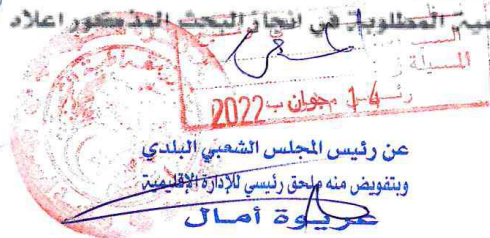 المطلوبة في انجاز البحث المذكور اعلاه
المسيلة
14 جوان 2022
عن رئيس المجلس الشعبي البلدي
وبتفويض منه ملحق رئيسي للإدارة الإقليمية
عريوة أمال